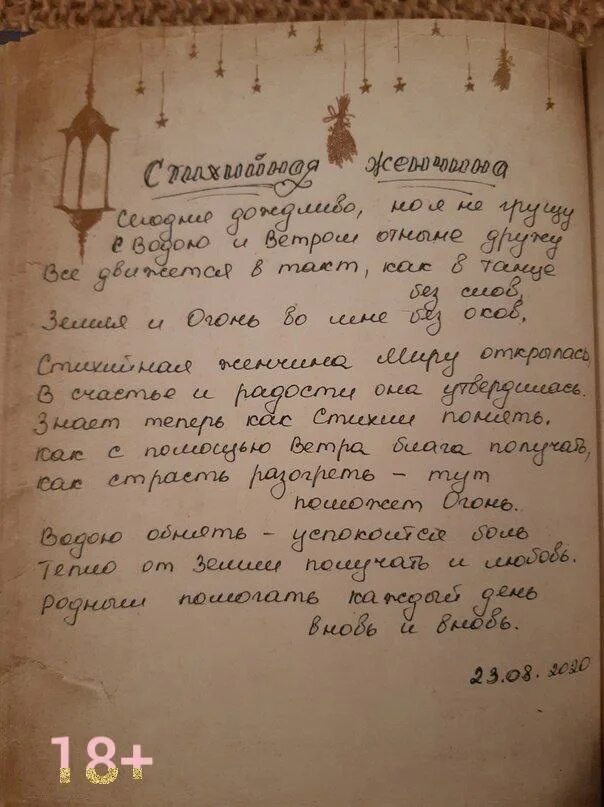 Стихийная женщина
Сегодня дождливо, но я не грущу
с Водою и Ветром отныне дружу
Все движется в такт, как в танце
без слов,
Земля и Огонь во мне без оков.
Стихийная женщина Миру открылась,
В счастье и радости она утвердилась.
Знает теперь как Стихии понять.
как с помощью Ветра блага получать,
как страсть разогреть – тут
поможет Огонь.
Водою обнять – успокоится боль
Тепло от Земли получать и любовь.
Родным помогать каждый день
вновь и вновь.
23.08.2020
18+